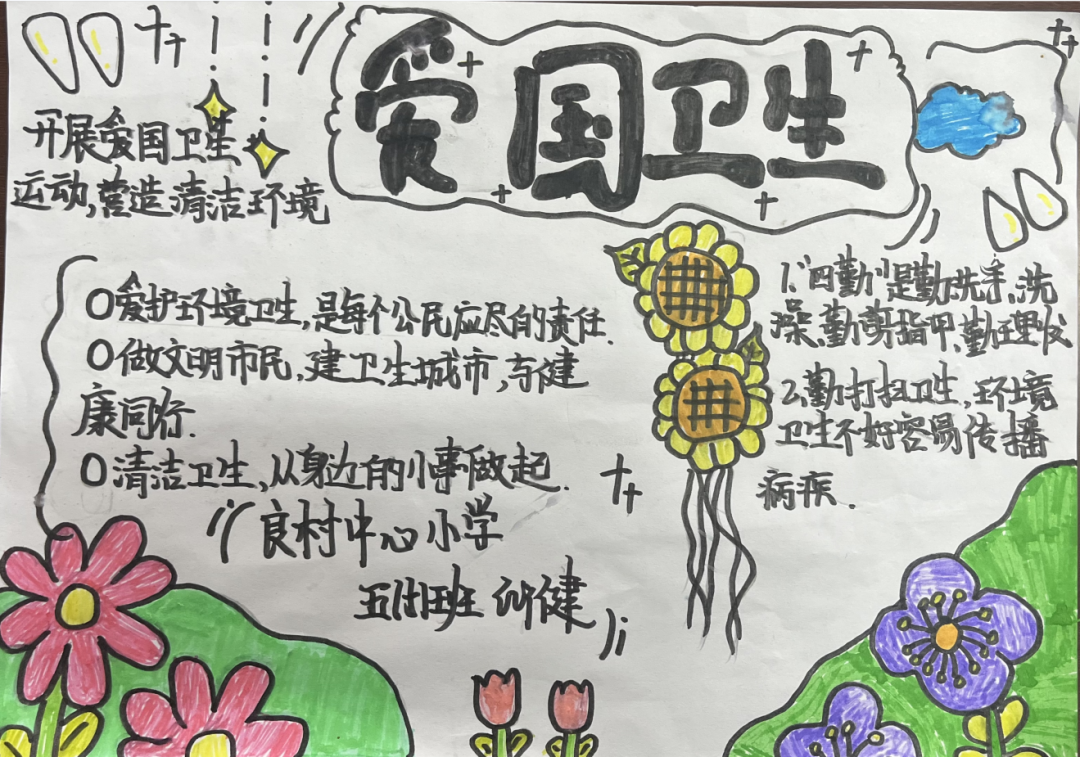 爱国卫生
开展爱国卫生
运动,营造清洁环境
O爱护环境卫生,是每个公民应尽的责任.
O做文明市民,建卫生城市,与健
康同行.
O清洁卫生,从身边的小事做起.
良村中心小学
五(1)班 健
1."四勤"是勤洗手、洗
澡、勤剪指甲、勤理发
2.勤打扫卫生,环境
卫生不好容易传播
病疾.